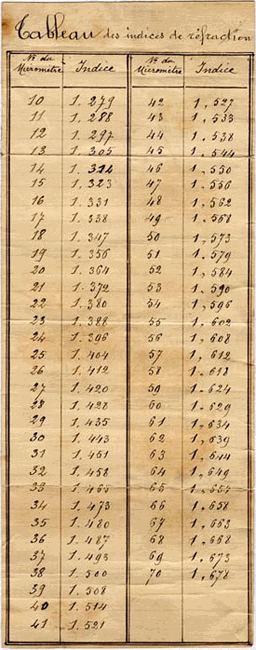 Tableau des indices de réfraction
N° du Micromètre Indice N° du Micromètre Indice
10 1.279 42 1.527
11 1.288 43 1.533
12 1.297 44 1.538
13 1.305 45 1.544
14 1.314 46 1.550
15 1.323 47 1.556
16 1.331 48 1.562
17 1.338 49 1.568
18 1.347 50 1.573
19 1.356 51 1.579
20 1.364 52 1.584
21 1.372 53 1.590
22 1.380 54 1.596
23 1.388 55 1.602
24 1.396 56 1.608
25 1.404 57 1.612
26 1.412 58 1.618
27 1.420 59 1.624
28 1.428 60 1.629
29 1.435 61 1.634
30 1.443 62 1.639
31 1.451 63 1.644
32 1.458 64 1.649
33 65
34 1.473 66 1.658
35 1.480 67 1.663
36 1.487 68 1.668
37 1.493 69 1.673
38 1.500 70 1.678
39 1.508
40 1.514
41 1.521